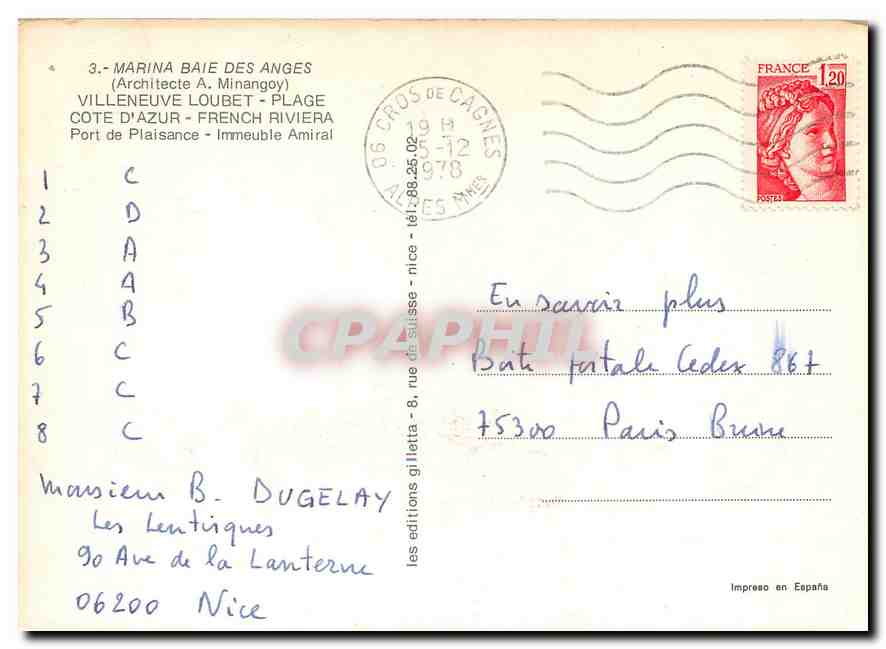 3.- MARINA BAIE DES ANGES
(Architecte A. Minangoy)
VILLENEUVE LOUBET - PLAGE
COTE D'AZUR - FRENCH RIVIERA
Port de Plaisance - Immeuble Amiral
1 C
2 D
3 A
4 A
5 B
6 C
7 C
8 C
Monsieur B. DUGELAY
Les Lentisques
90 Ave de la Lanterne
06200 Nice
les editions gilletta - 8, rue de suisse - nice - tél. 88.25.02
06 CROS DE CAGNES
19 H
5-12
1978
ALPES MMES
FRANCE
1,20
POSTES
En savoir plus
Boite postale Cedex 867
75300 Paris Brune
Impreso en España
CPAPHIL